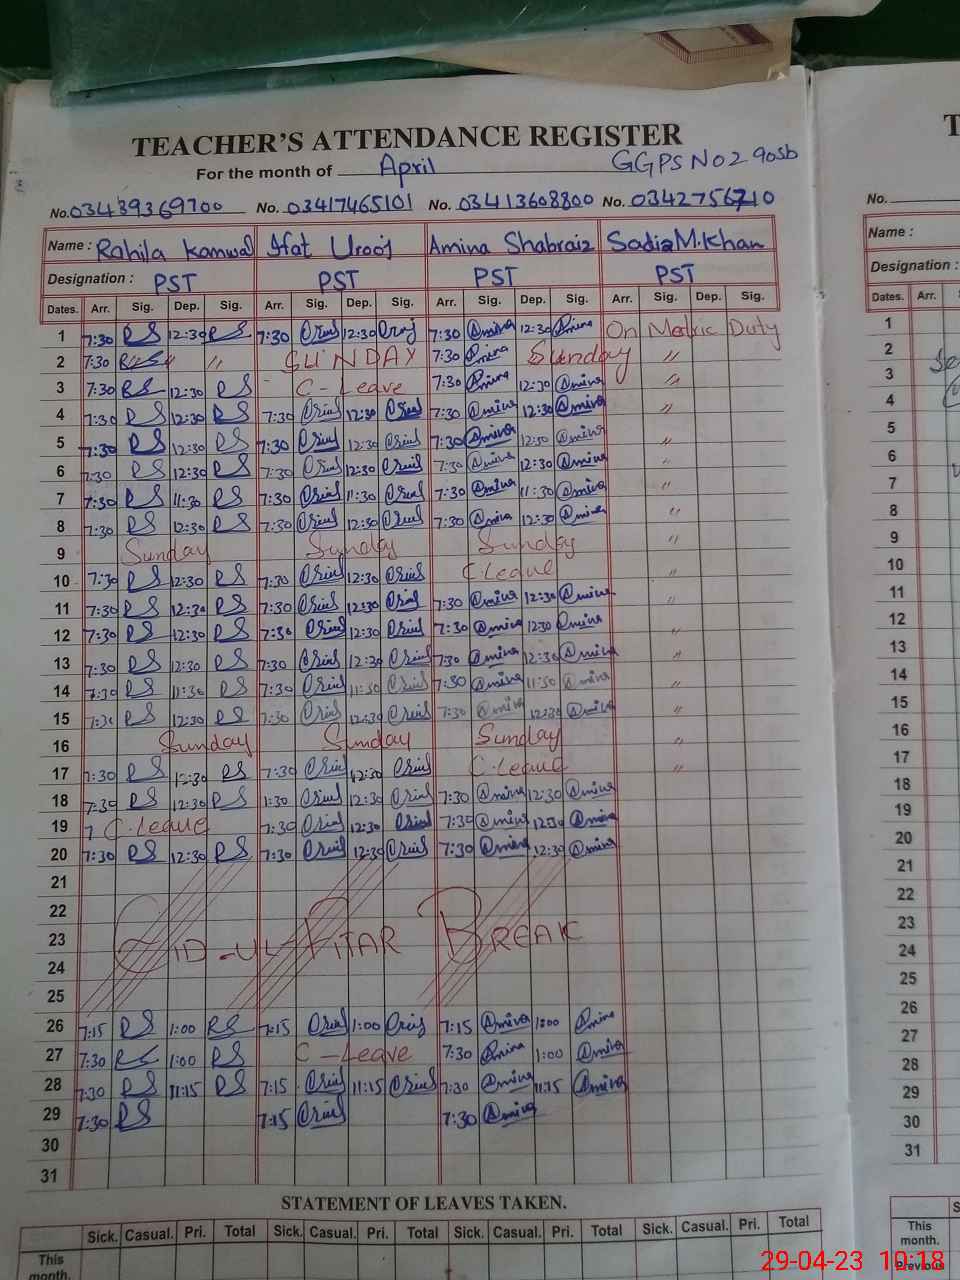 TEACHER'S ATTENDANCE REGISTER
For the month of April GGPS No 2 90sb
No. 03439369700 No. 03417465101 No. 03413608800 No. 03427567710
Name : Rahila Kanwal Ifat Urooj Amina Shabraiz Sadia M.Khan
Designation : PST PST PST PST
Dates. Arr. Sig. Dep. Sig. Arr. Sig. Dep. Sig. Arr. Sig. Dep. Sig. Arr. Sig. Dep. Sig.
1 7:30 RS 12:30 RS 7:30 12:30 7:30 Amina 12:30 Amina On Medic Duty
2 7:30 RS " SUNDAY 7:30 Amina Sunday "
3 7:30 RS 12:30 RS C-Leave 7:30 Amina 12:30 Amina "
4 7:30 RS 12:30 RS 7:30 12:30 7:30 Amina 12:30 Amina "
5 7:30 RS 12:30 RS 7:30 12:30 7:30 Amina 12:30 Amina "
6 7:30 RS 12:30 RS 7:30 12:30 7:30 Amina 12:30 Amina "
7 7:30 RS 11:30 RS 7:30 11:30 7:30 Amina 11:30 Amina "
8 7:30 RS 12:30 RS 7:30 12:30 7:30 Amina 12:30 Amina "
9 Sunday Sunday Sunday "
10 7:30 RS 12:30 RS 7:30 12:30 C Leave "
11 7:30 RS 12:30 RS 7:30 12:30 7:30 Amina 12:30 Amina "
12 7:30 RS 12:30 RS 7:30 12:30 7:30 Amina 12:30 Amina "
13 7:30 RS 12:30 RS 7:30 12:30 7:30 Amina 12:30 Amina "
14 7:30 RS 11:30 RS 7:30 11:30 7:30 Amina 11:30 Amina "
15 7:30 RS 12:30 RS 7:30 12:30 7:30 Amina 12:30 Amina "
16 Sunday Sunday Sunday "
17 7:30 RS 12:30 RS 7:30 12:30 C.Leave "
18 7:30 RS 12:30 RS 1:30 12:30 7:30 Amina 12:30 Amina
19 7 C.Leave 7:30 12:30 7:30 Amina 12:30 Amina
20 7:30 RS 12:30 RS 7:30 12:30 7:30 Amina 12:30 Amina
21
22
23 EID-UL-FITAR BREAK
24
25
26 7:15 RS 1:00 RS 7:15 1:00 7:15 Amina 1:00 Amina
27 7:30 RS 1:00 RS C-Leave 7:30 Amina 1:00 Amina
28 7:30 RS 11:15 RS 7:15 11:15 7:30 Amina 11:15 Amina
29 7:30 RS 7:15 7:30 Amina
30
31
STATEMENT OF LEAVES TAKEN.
Sick. Casual. Pri. Total Sick. Casual. Pri. Total Sick. Casual. Pri. Total Sick. Casual. Pri. Total
This month.
T
No.
Name :
Designation :
Dates. Arr.
1
2
3
4
5
6
7
8
9
10
11
12
13
14
15
16
17
18
19
20
21
22
23
24
25
26
27
28
29
30
31
S
This month.
Previous
29-04-23 10:18